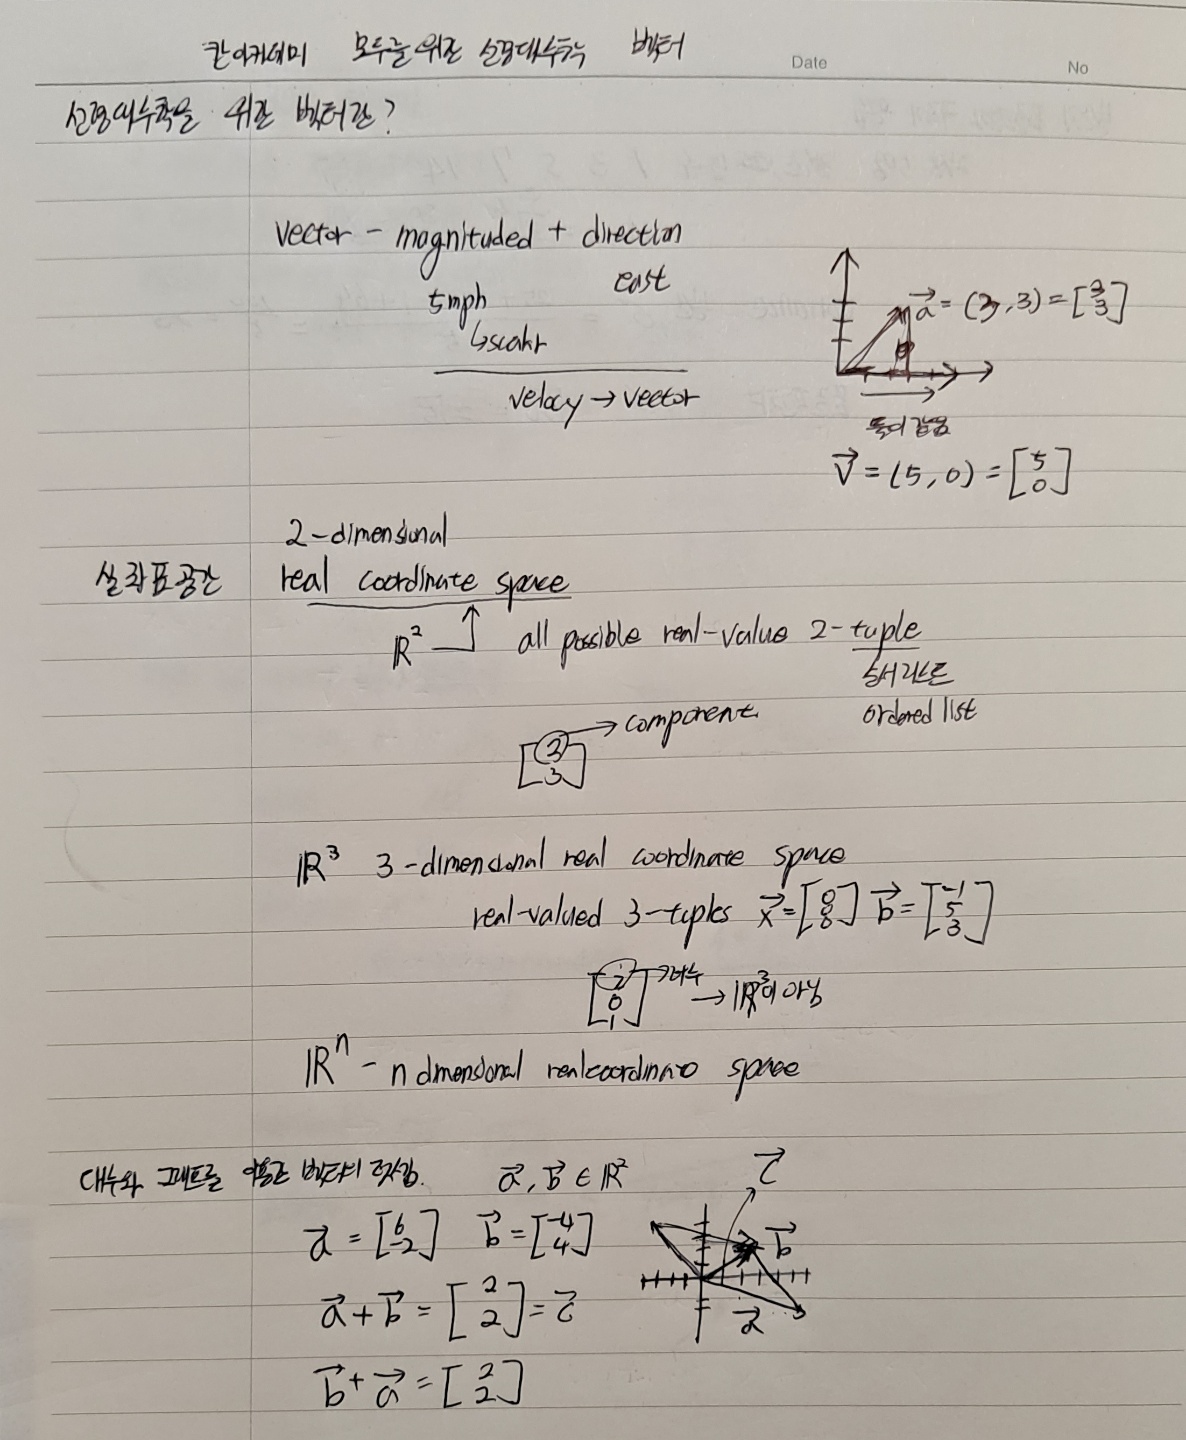 칸아카데미 모두를 위한 선형대수학 벡터
Date
No
선형대수학을 위한 벡터란?
vector - magnituded + direction
5mph east
↳scalar
velocy → vector
a⃗ = (3,3) = [3 3]
똑이 같음
v⃗ = (5,0) = [5 0]
2-dimensional
실좌표공간 real coordinate space
ℝ² all possible real-value 2-tuple
순서리스트
ordered list
[3 3] → component
ℝ³ 3-dimensional real coordinate space
real-valued 3-tuples x⃗=[0 0 0] b⃗=[-1 5 3]
[i 0 1] →허수 → ℝ³이 아님
ℝⁿ - n dimensional realcoordinate space
대수와 그래프를 이용한 벡터의 덧셈. a⃗, b⃗ ∈ ℝ²
a⃗ = [6 -2] b⃗ = [-4 4]
a⃗+b⃗ = [2 2] = c⃗
b⃗+a⃗ = [2 2]
c⃗
b⃗
a⃗